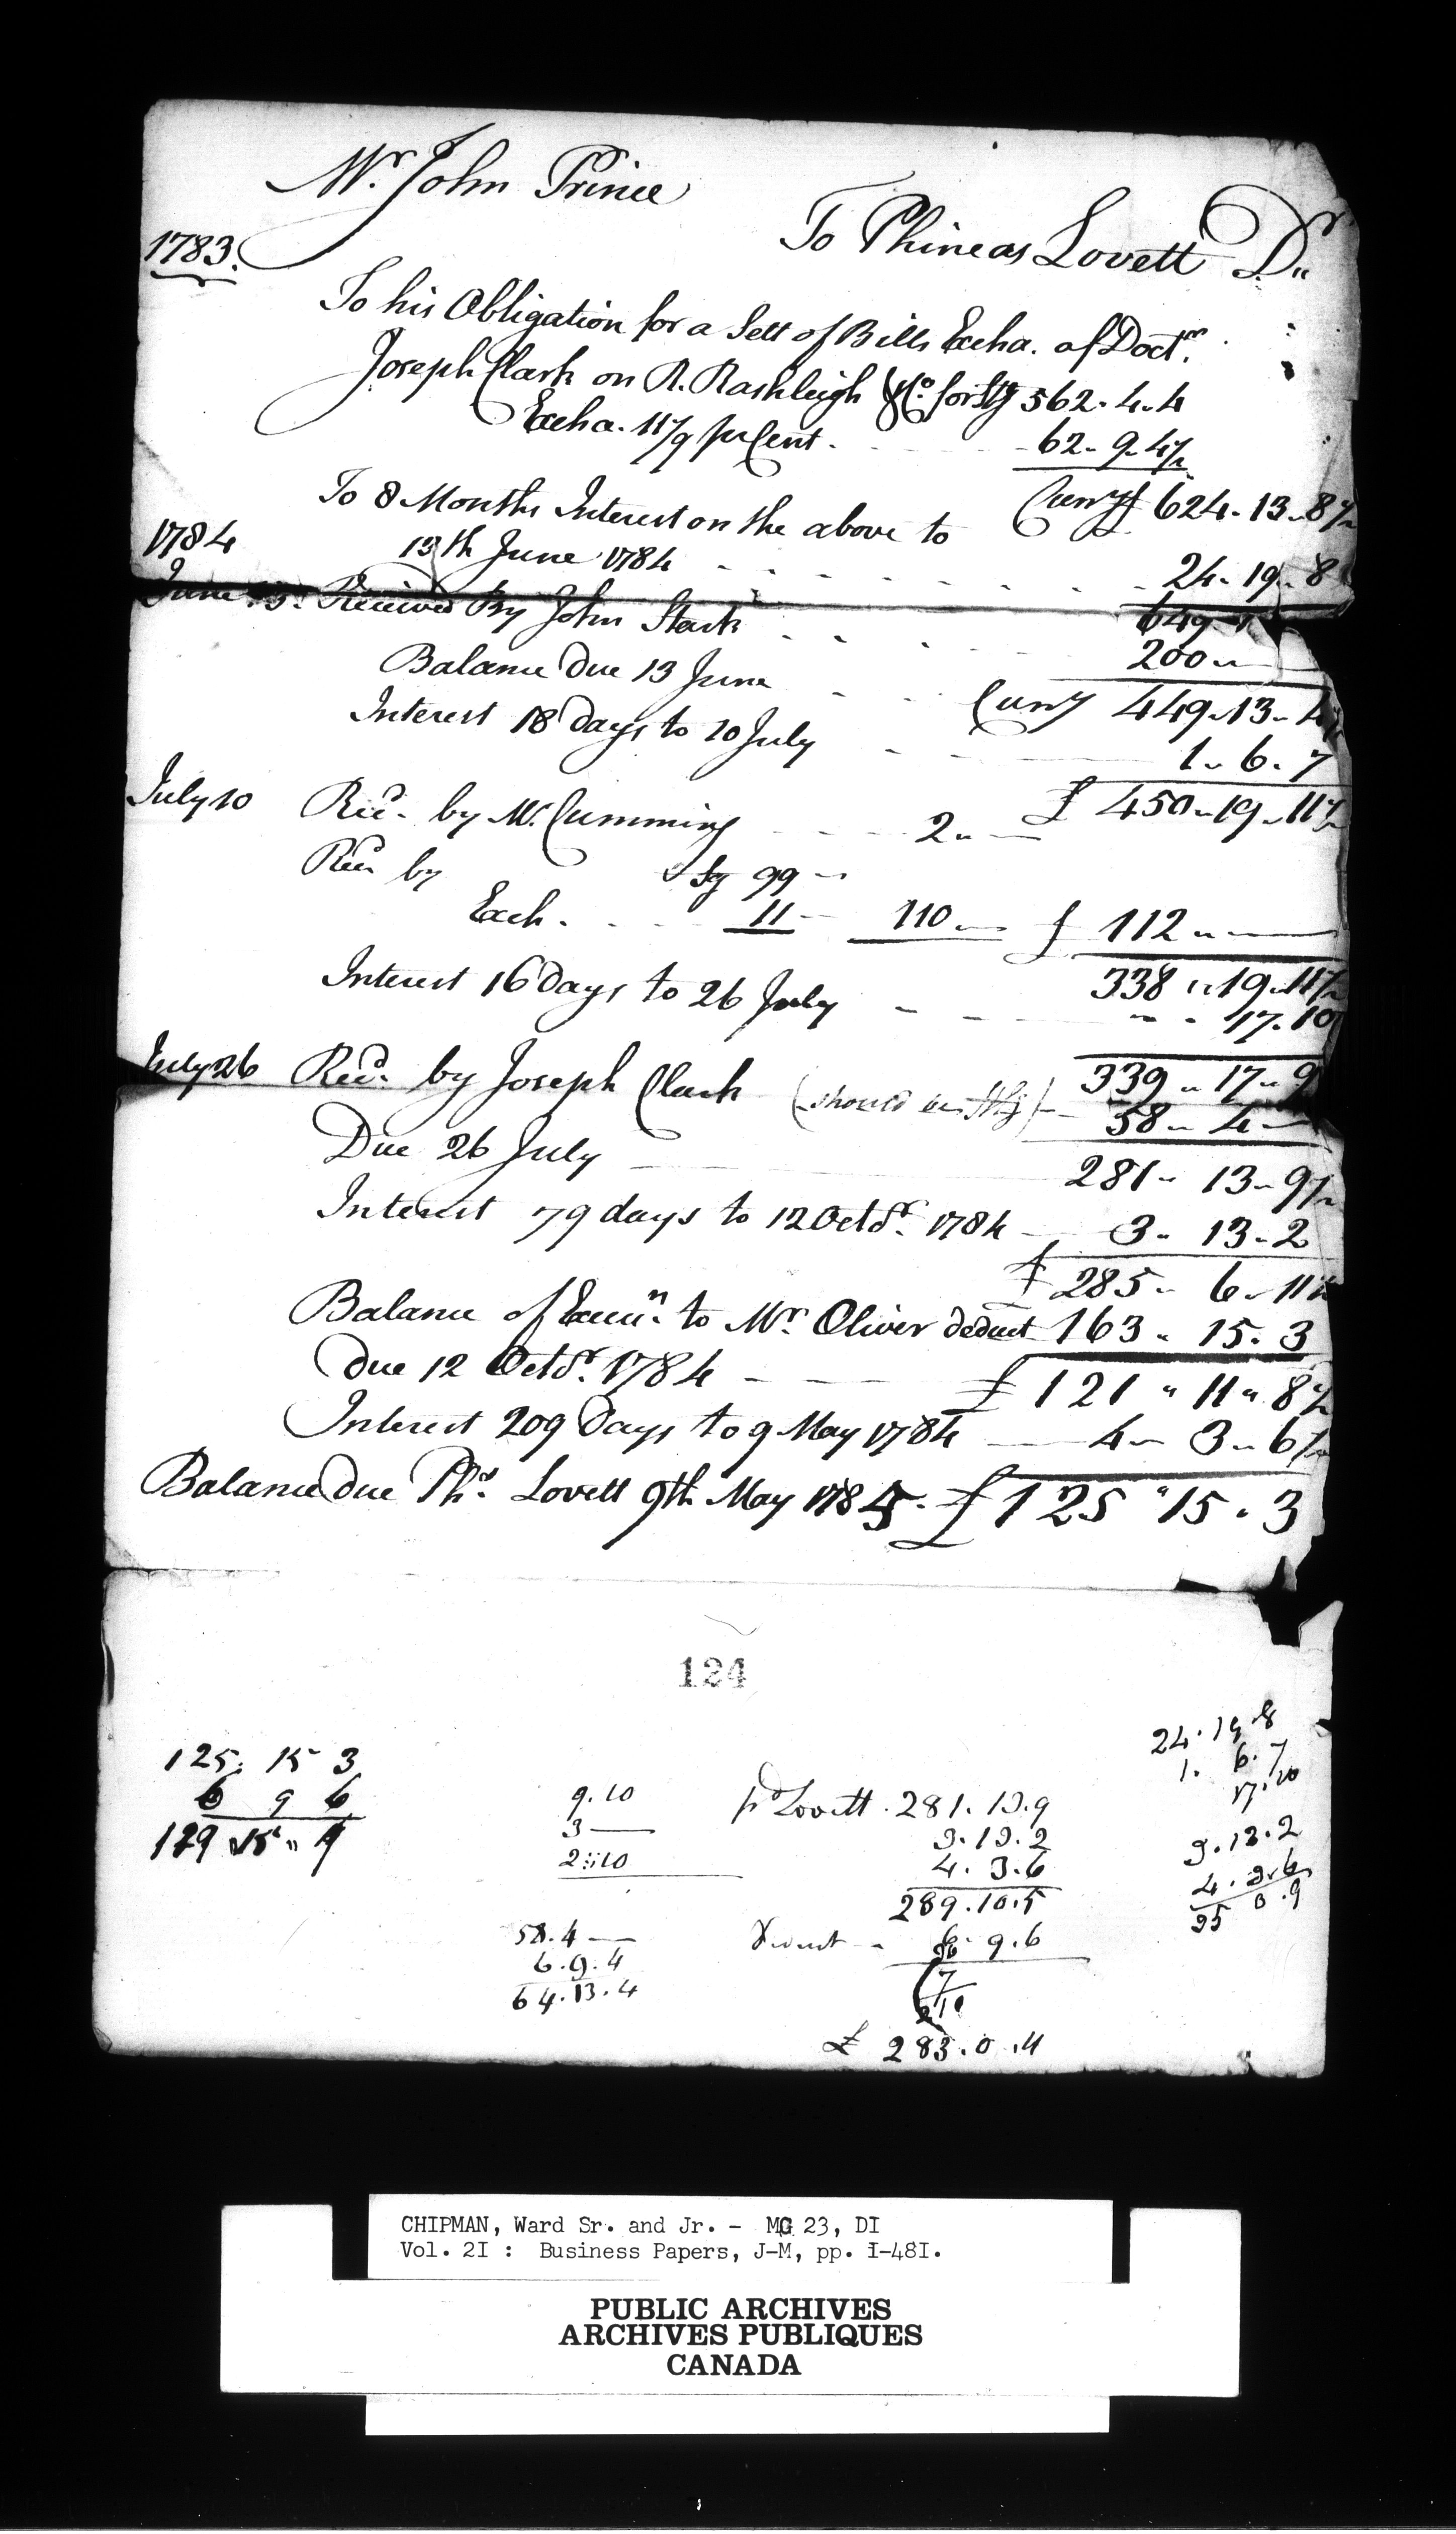 Mr. John Prince
To Phineas Lovett Dr
1783.
To his Obligation for a Sett of Bills Excha. of Doctr.
Joseph Clark on R. Rashleigh & Co. for Stg 562.4.4
Excha. 11 1/9 pr Cent. 62.9.4 1/2
Curry £ 624.13.8 1/2
To 8 Months Interest on the above to
1784 13th June 1784 24.19.8
June 13. Received By John Stark 649
200
Balance Due 13 June Curry 449.13.4
Interest 18 Days to 10 July 1.6.7
£ 450.19.11 1/2
July 10 Recd. by Mr. Cumming 2
Recd by Stg 99
Exch. 11 110 £ 112
338.19.11 1/2
Interest 16 Days to 26 July 17.10
339.17.9
July 26 Recd. by Joseph Clark (should be Stg) 58.4
Due 26 July 281.13.9 1/2
Interest 79 days to 12 Octbr. 1784 3.13.2
£ 285.6.11 1/2
Balance of Execun. to Mr. Oliver deduct 163.15.3
Due 12 Octbr. 1784 £ 121.11.8 1/2
Interest 209 Days to 9 May 1784 4.3.6 1/2
Balance due Phs. Lovett 9th May 1785. £ 125.15.3
124
24.19.8
1.6.7
17.10
3.13.2
4.3.6
35 0.9
125.15 3
6 9 6
9.10
3
2:10
pd Lovett. 281.13.9
3.13.2
4.3.6
289.10.5
6.9.6
58.4
6.9.4
64.13.4
£ 283.0.11
CHIPMAN, Ward Sr. and Jr. - MG 23, DI
Vol. 2I : Business Papers, J-M, pp. I-48I.
PUBLIC ARCHIVES
ARCHIVES PUBLIQUES
CANADA